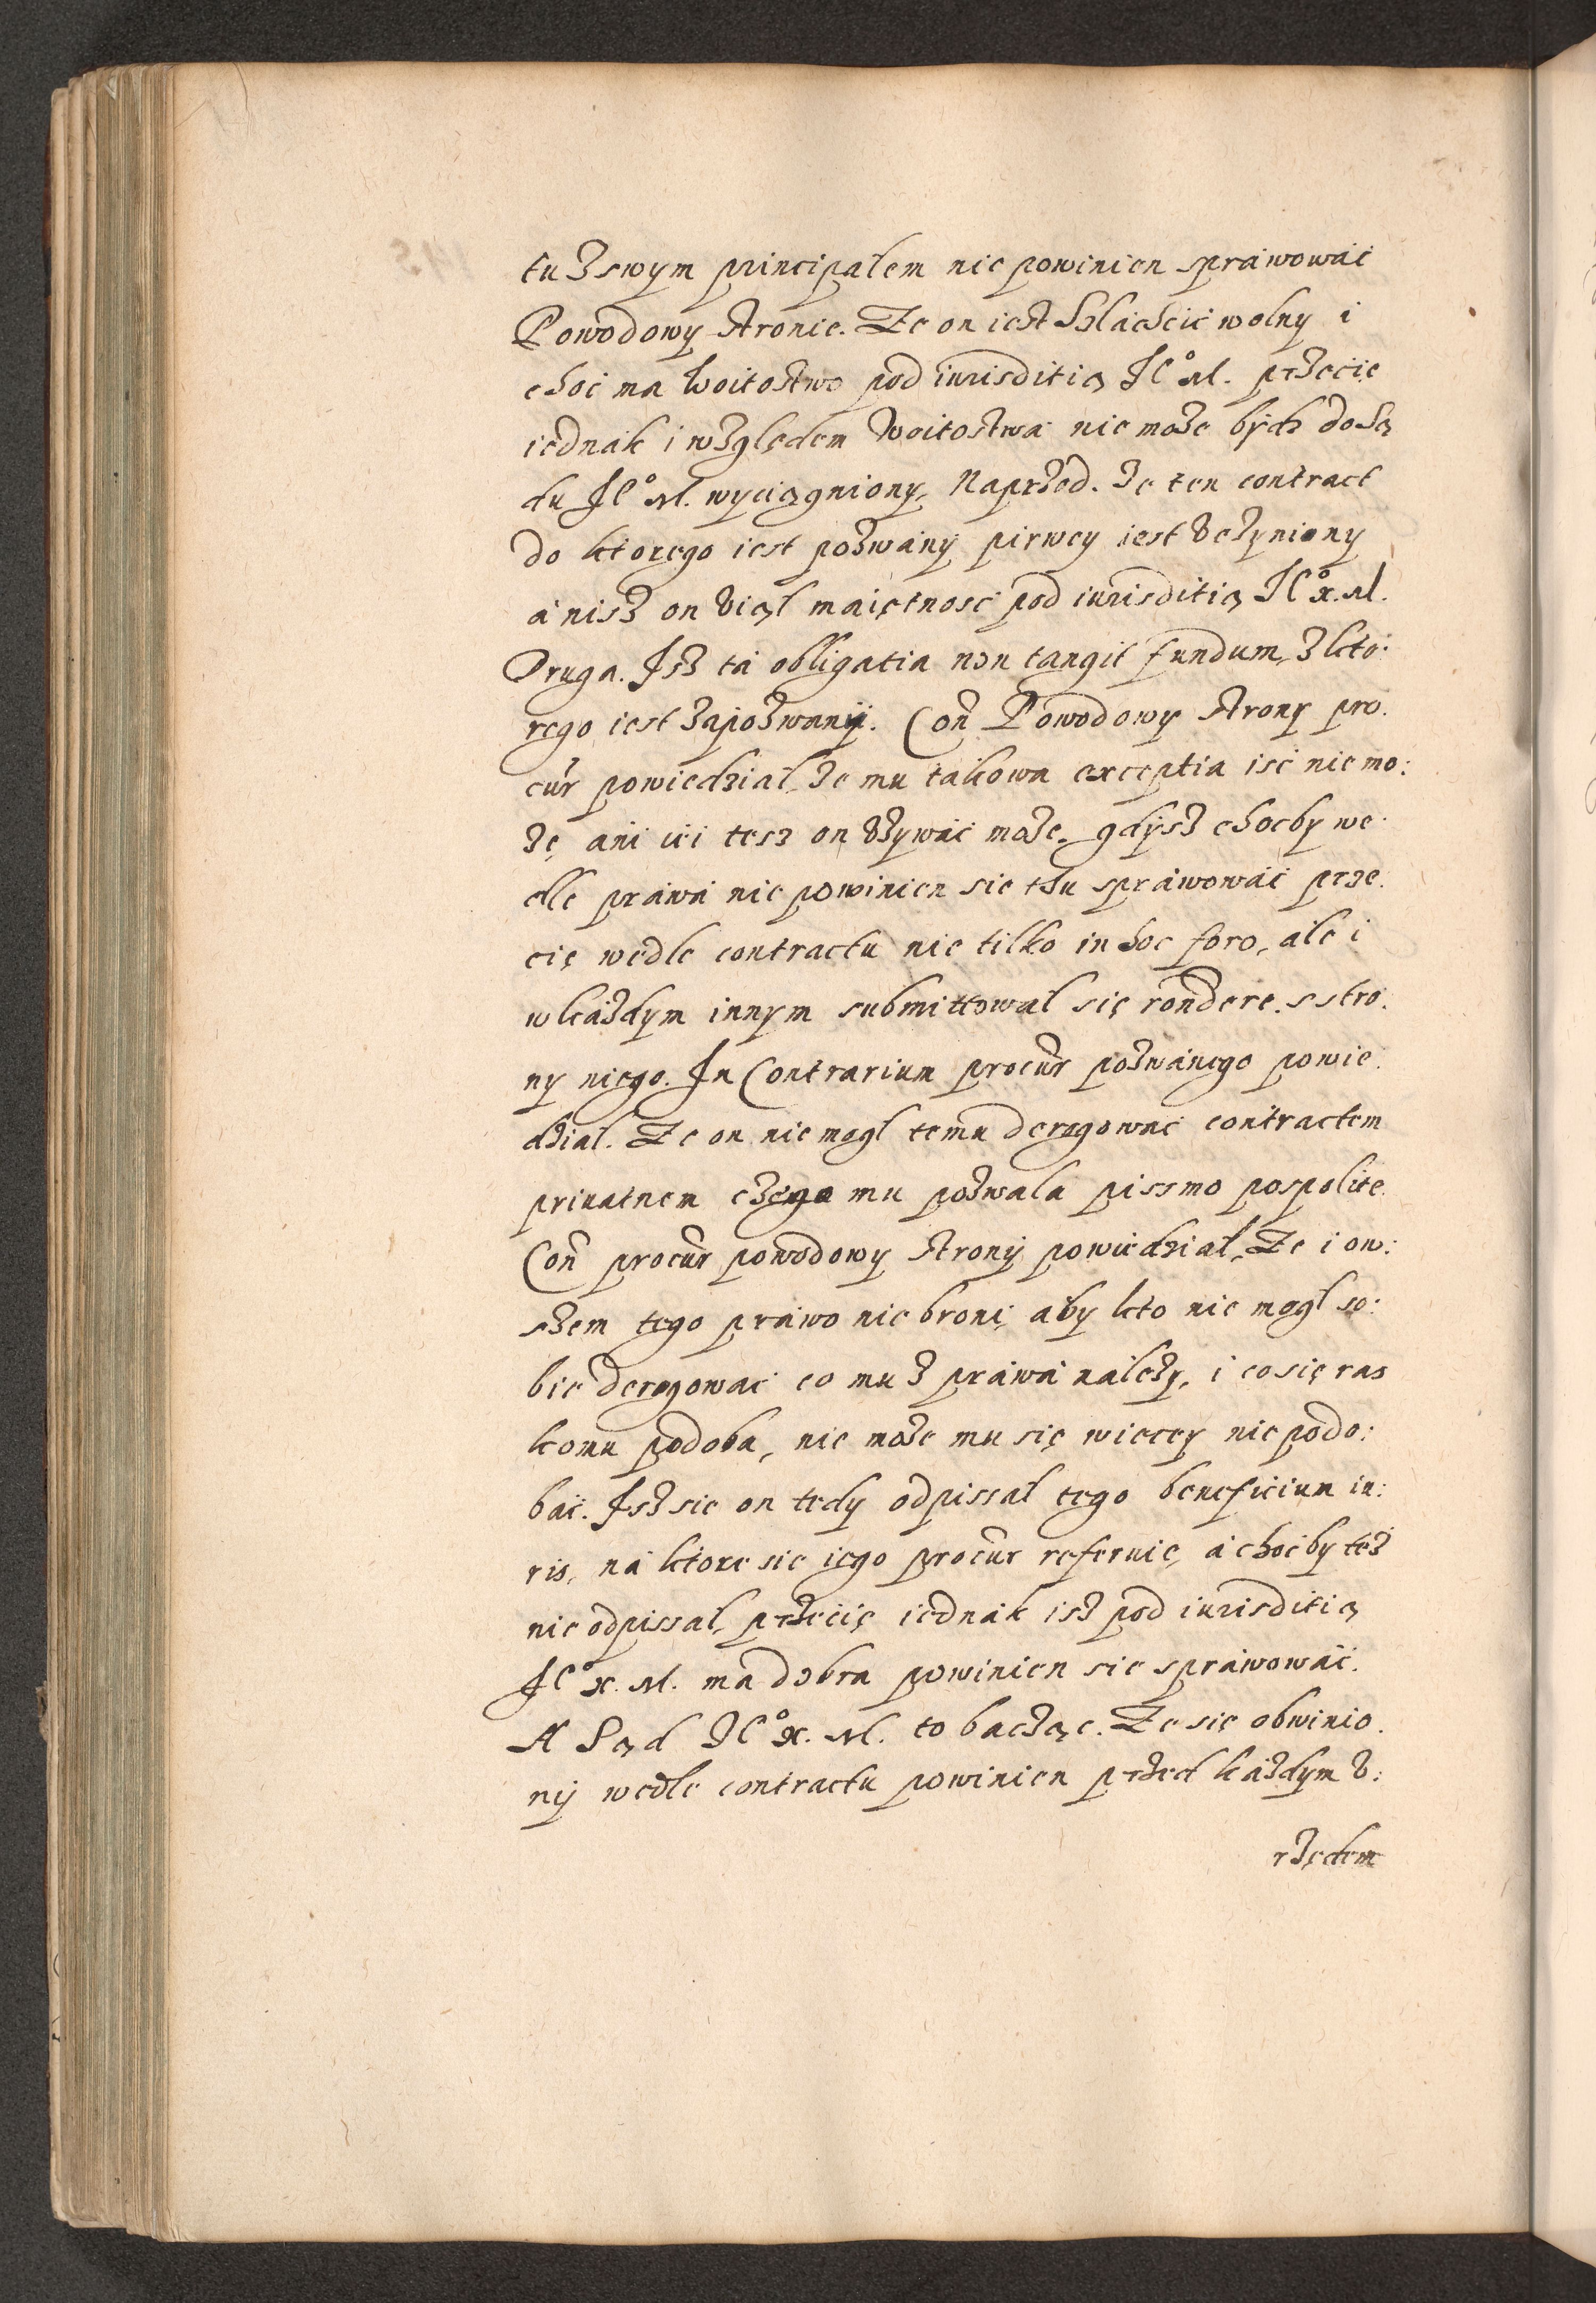 tu zswym principalem nie powinien spráwowáć
Powodowy stronie. Że on iest Szláchcic wolny i
choć ma Woitostwo pod iurisditią Jº M. przecię
iednák i wzglęḋem Woitostwá nie może bydź do Są
du Jº M. wyciągniony, Naprzod. że ten contract
do ktorego iest pozwány pirwey iest vczyniony
ániż on viął maiętnosć pod iurisditią Jº X. M.
Druga. Isz tá obligatia non tangit fundum, z kto:
rego iest zapozwany. Coñ Powodowy strony pro.
cur powiedział, że mu takowa exceptia iść nie mo:
że, áni iéi tesz on vżywáć może, gdysz choćby we
dle práwá nie powinien sie tu spráwowáć prze.
cię wedle contractu nie tilko in hoc foro, ále i
w káżdym innym submittował się rondere. s stro.
ny niego. In Contrarium procur pozwánego powie.
dział. Że on nie mogł temu derogowác contractem
priuatnem czego mu pozwala pissmo pospolite
Coñ procur powodowy strony powiedział, Że i ow:
szem tego práwo nie broni, aby kto nie mogł so:
bie derogowáć co mu z práwá należy, i co się ras
komu podoba, nie może mu się więcey nie podo:
báć. Isz sie on tedy odpissał tego beneficium iu:
ris, ná ktore sie iego procur referuie, á choćby też
nie odpissał, przecię iednák isz pod iurisditią
Jº X. M. ma dobra powinien sie spráwowáć.
A Sąd Jº X. M. to bacząc. Że sie obwinio.
ny wedle contractu powinien przed káżdym v:
rzędem